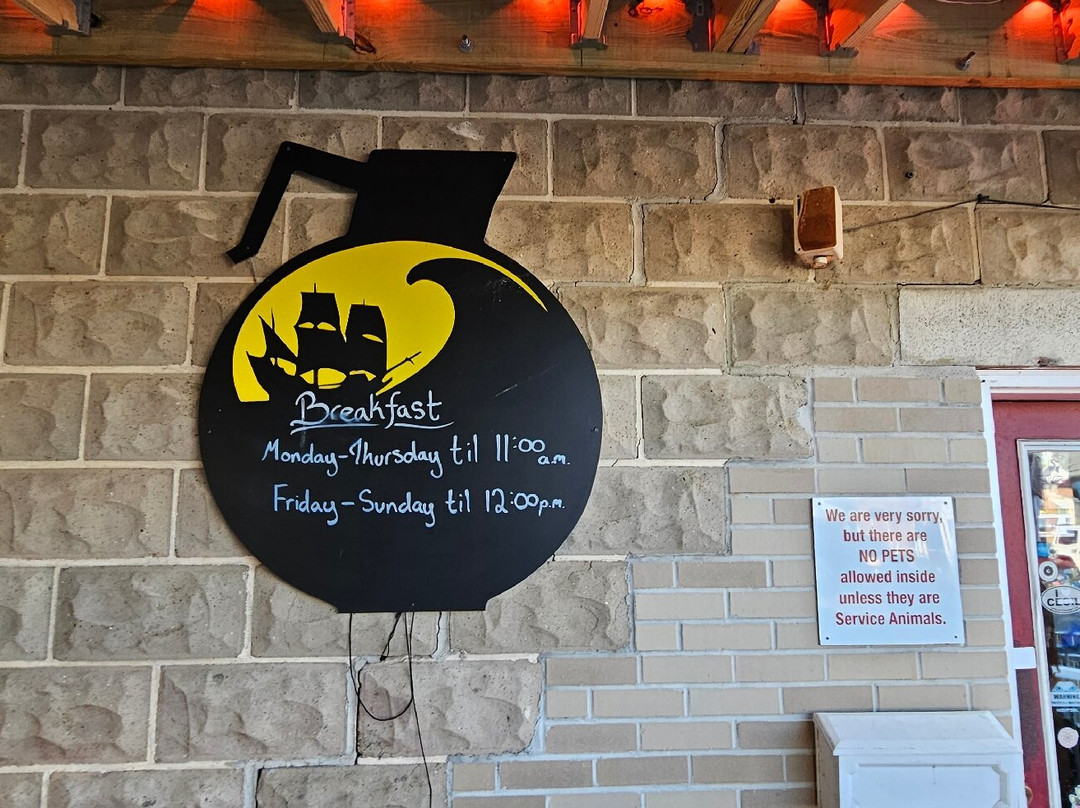 Breakfast
Monday-Thursday til 11:00 a.m.
Friday-Sunday til 12:00 p.m.
We are very sorry,
but there are
NO PETS
allowed inside
unless they are
Service Animals.
WARNING